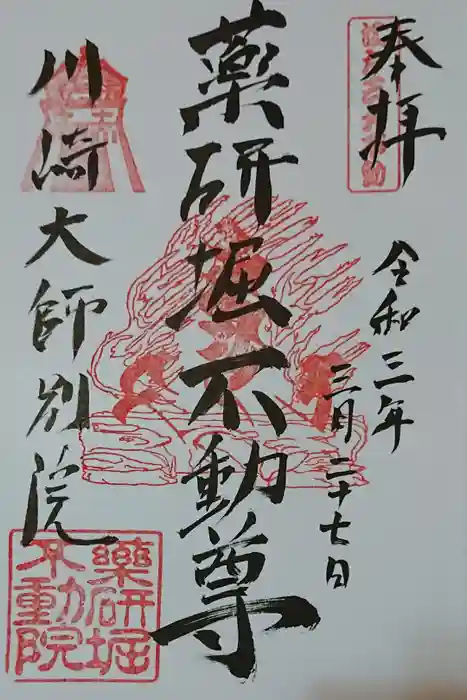 奉拝
令和三年
三月二十七日
薬研堀不動尊
川崎大師別院
薬研堀
不動院